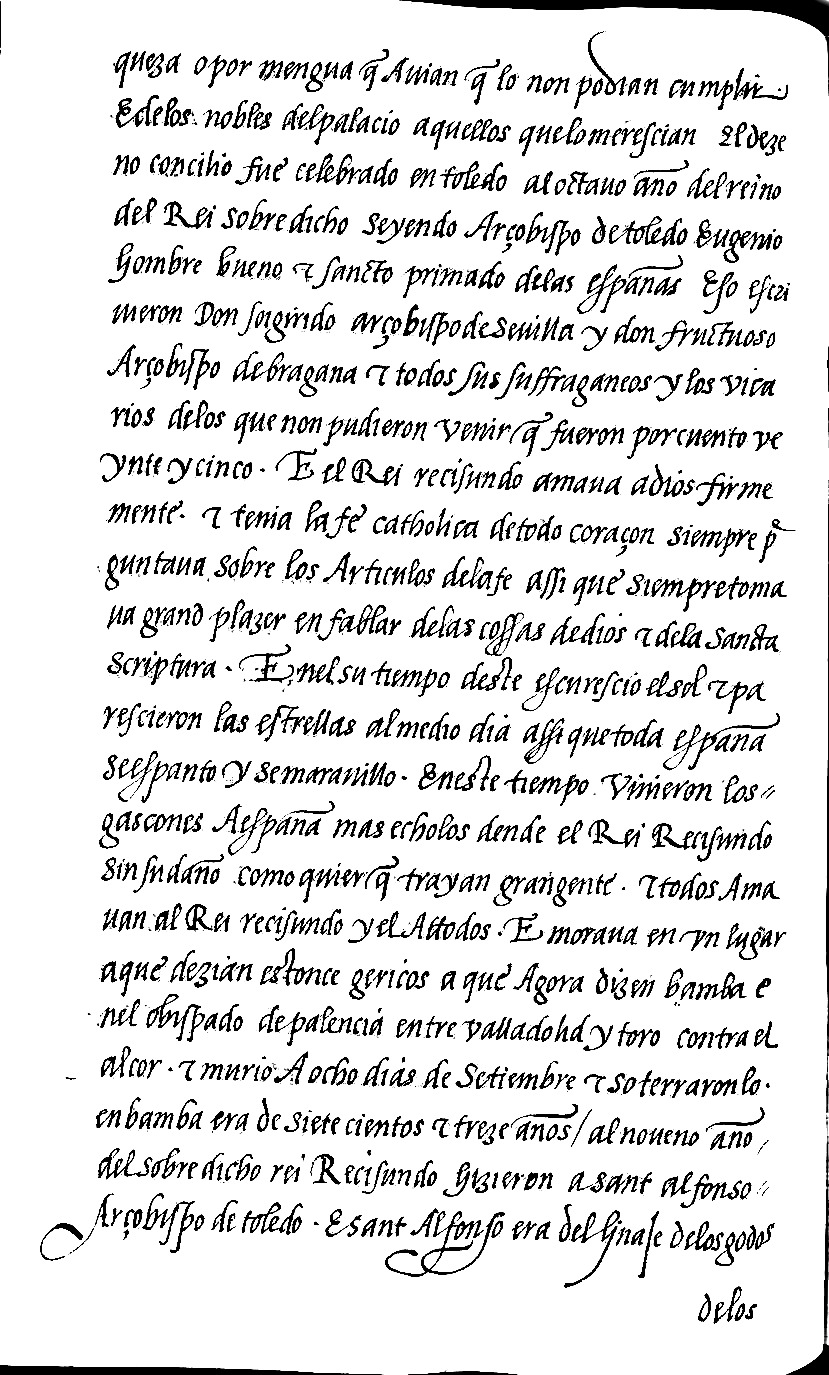 queza o por mengua q̃ Auian q̃ lo non podian cumplir.
E delos nobles del palacio aquellos quelo merescian El deze
no concilio fue celebrado en toledo al octauo año del reino
del Rei sobre dicho seyendo Arçobispo de toledo Eugenio
hombre bueno ⁊ sancto primado delas españas Eso escri
uieron Don soigirido arçobispo de Seuilla y don fructuoso
Arçobispo de bragana ⁊ todos sus suffraganeos y los vica
rios delos que non pudieron venir q̃ fueron por cuento ve
ynte y cinco. E el Rei recisundo amaua adios firme
mente. ⁊ tenia la fe catholica de todo coraçon siempre p̃
guntaua sobre los Articulos dela fe assi que siempre toma
ua grand plazer en fablar delas cossas de dios ⁊ dela sancta
scriptura. E nel su tiempo deste escurescio el sol ⁊ pa
rescieron las estrellas al medio dia assi que toda españa
se espanto y se marauillo. En este tiempo vinieron los〃
gascones A españa mas echolos dende el Rei Recisundo
sin su daño como quier q̃ trayan gran gente. ⁊ todos Ama
uan al Rei recisundo y el A todos. E moraua en vn lugar
aque dezian estonce gericos a que Agora dizen bamba e
nel obispado de palencia entre valladolid y toro contra el
alcor. ⁊ murio A ocho dias de Setiembre ⁊ soterraronlo.
en bamba era de siete cientos ⁊ treze años / al noueno año,
del sobre dicho rei Recisundo hizieron a sant alfonso〃
Arçobispo de toledo. E sant Alfonso era del linaje delos godos
delos